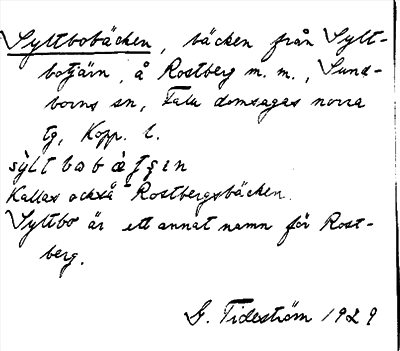 Syltbobäcken, bäcken från Sylt-
botjärn, å Rostberg m. m., Sund-
borns sn, Falu domsagas norra
tg, Kopp. l.
sỳltbobätʃɛn
Kallas också Rostbergsbäcken.
Syltbo är ett annat namn för Rost-
berg.
G. Tideström 1929